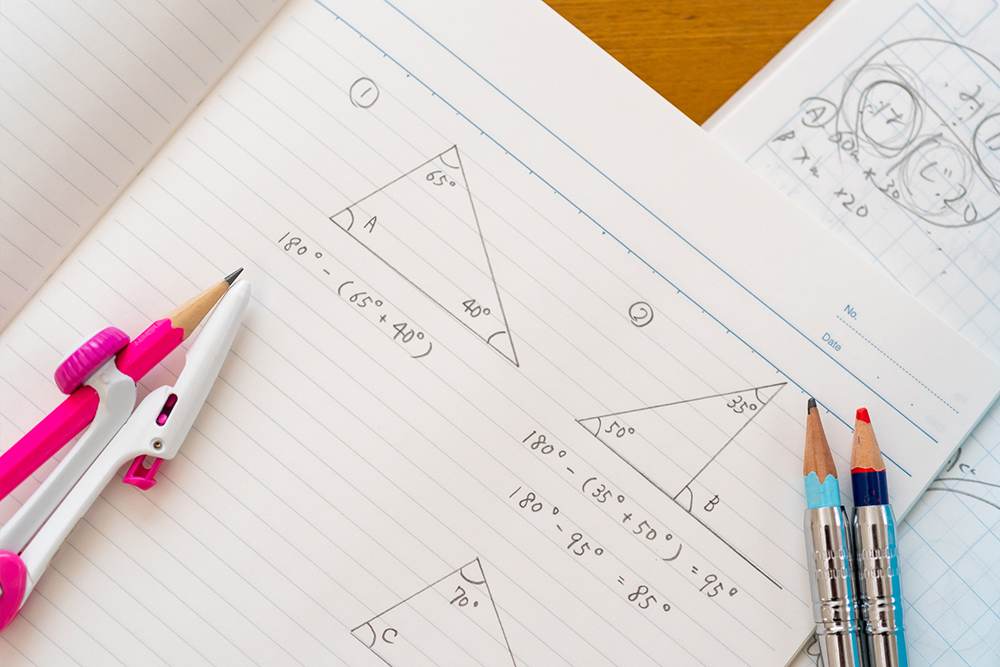 ①
65°
A
40°
180° - (65° + 40°)
②
35°
50°
B
180° - (35° + 50°) = 95°
180° - 95° = 85°
70°
C
No.
Date
A
×20